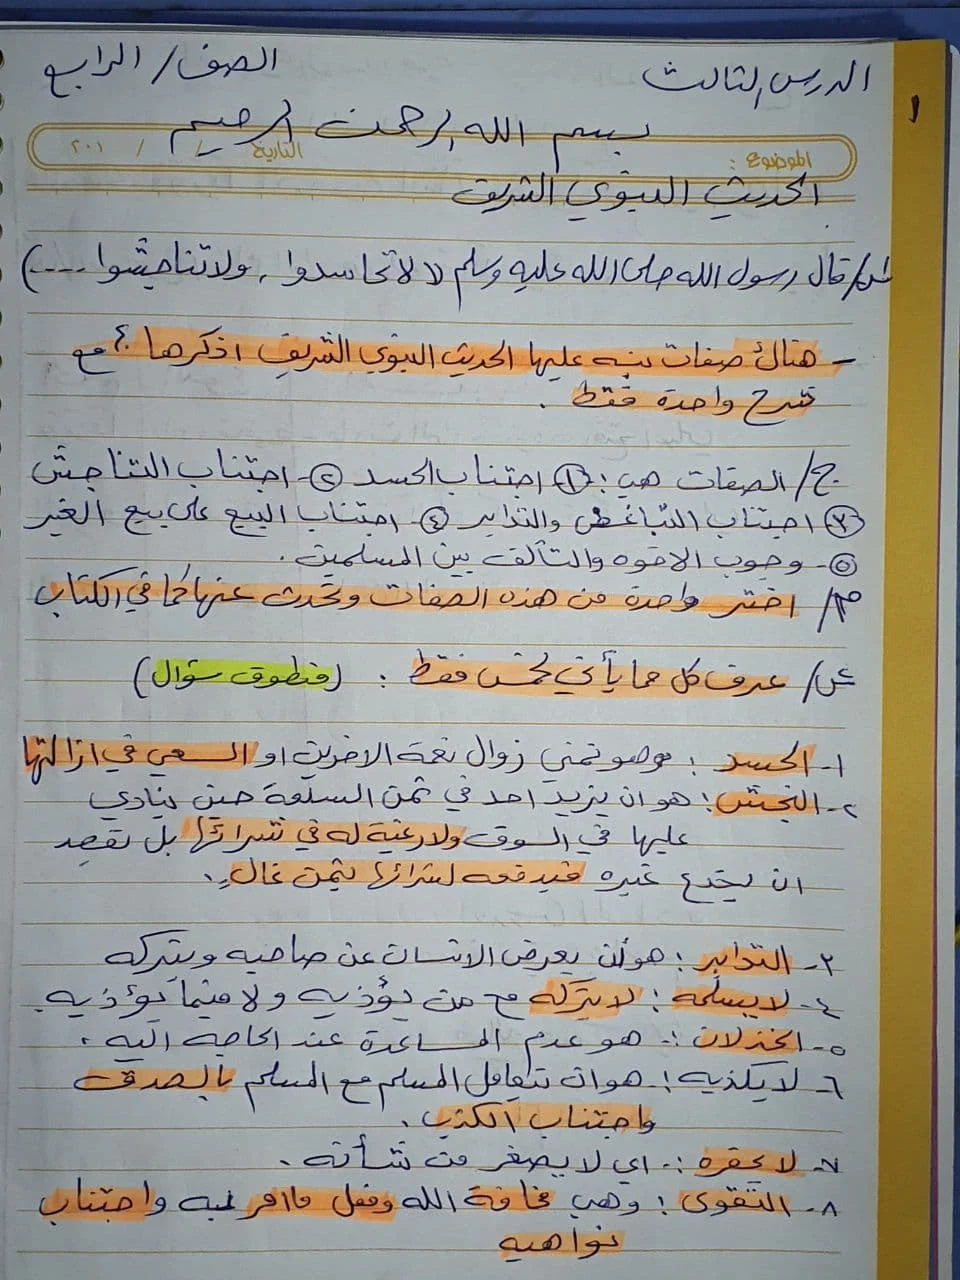 الدرس الثالث
الصف / الرابع
١
بسم الله الرحمن الرحيم
الموضوع :
التاريخ / / ٢٠١
الحديث النبوي الشريف
س/ قال رسول الله صلى الله عليه وسلم ( لا تحاسدوا , ولا تناجشوا ....)
- هنالك صفات ينبه عليها الحديث النبوي الشريف اذكرها ؟ مع
شرح واحدة فقط .
ج/ الصفات هي : ① اجتناب الحسد ②- اجتناب التناجش
③ اجتناب التباغض والتدابر ④- اجتناب البيع على بيع الغير
⑤- وجوب الاخوه والتآلف بين المسلمين .
م/ اختر واحدة من هذه الصفات وتحدث عنها كما في الكتاب
س/ عرف كل مما يأتي لخمس فقط : (منطوق سؤال)
١- الحسد : هو تمني زوال نعمة الاخرين او السعي في ازالتها
٢- النجش : هو ان يزيد احد في ثمن السلعة حين ينادي
عليها في السوق ولا رغبة له في شرائها بل يقصد
ان يخدع غيره فيدفعه لشرائها بثمن غالٍ .
٣- التدابر : هو أن يعرض الانسان عن صاحبه ويتركه
٤- لا يسلمه : لا يتركه مع من يؤذيه ولا فيما يؤذيه .
٥- الخذلان :- هو عدم المساعدة عند الحاجه اليه .
٦- لا يكذبه : هو ان يتعامل المسلم مع المسلم بالصدق
واجتناب الكذب .
٧- لا يحقره :- اي لا يصغر من شأنه .
٨- التقوى : وهي مخافة الله وفعل ما امر به واجتناب
نواهيه